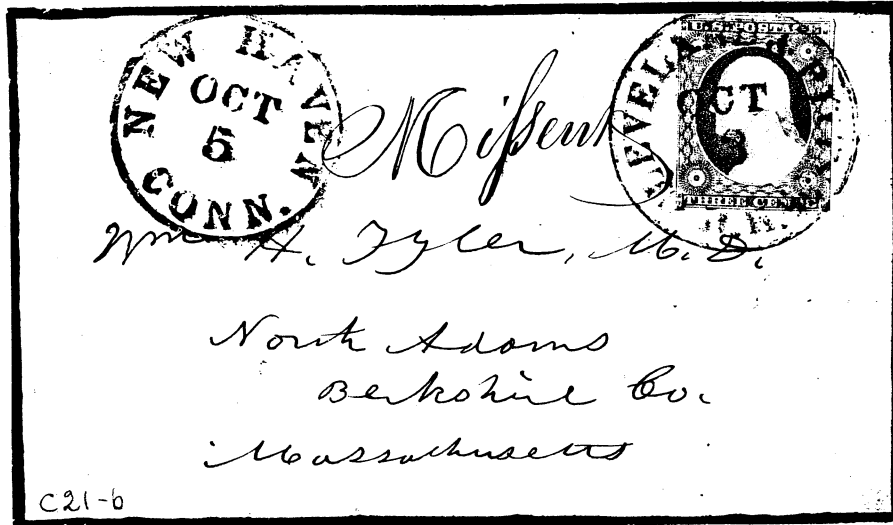 NEW HAVEN
OCT
5
CONN.
Missent
U.S. POSTAGE
CLEVELAND &
OCT
R.R.
THREE CENTS
Wm H. Tyler, M. D.
North Adams
Berkshire Co.
Massachusetts
C21-b